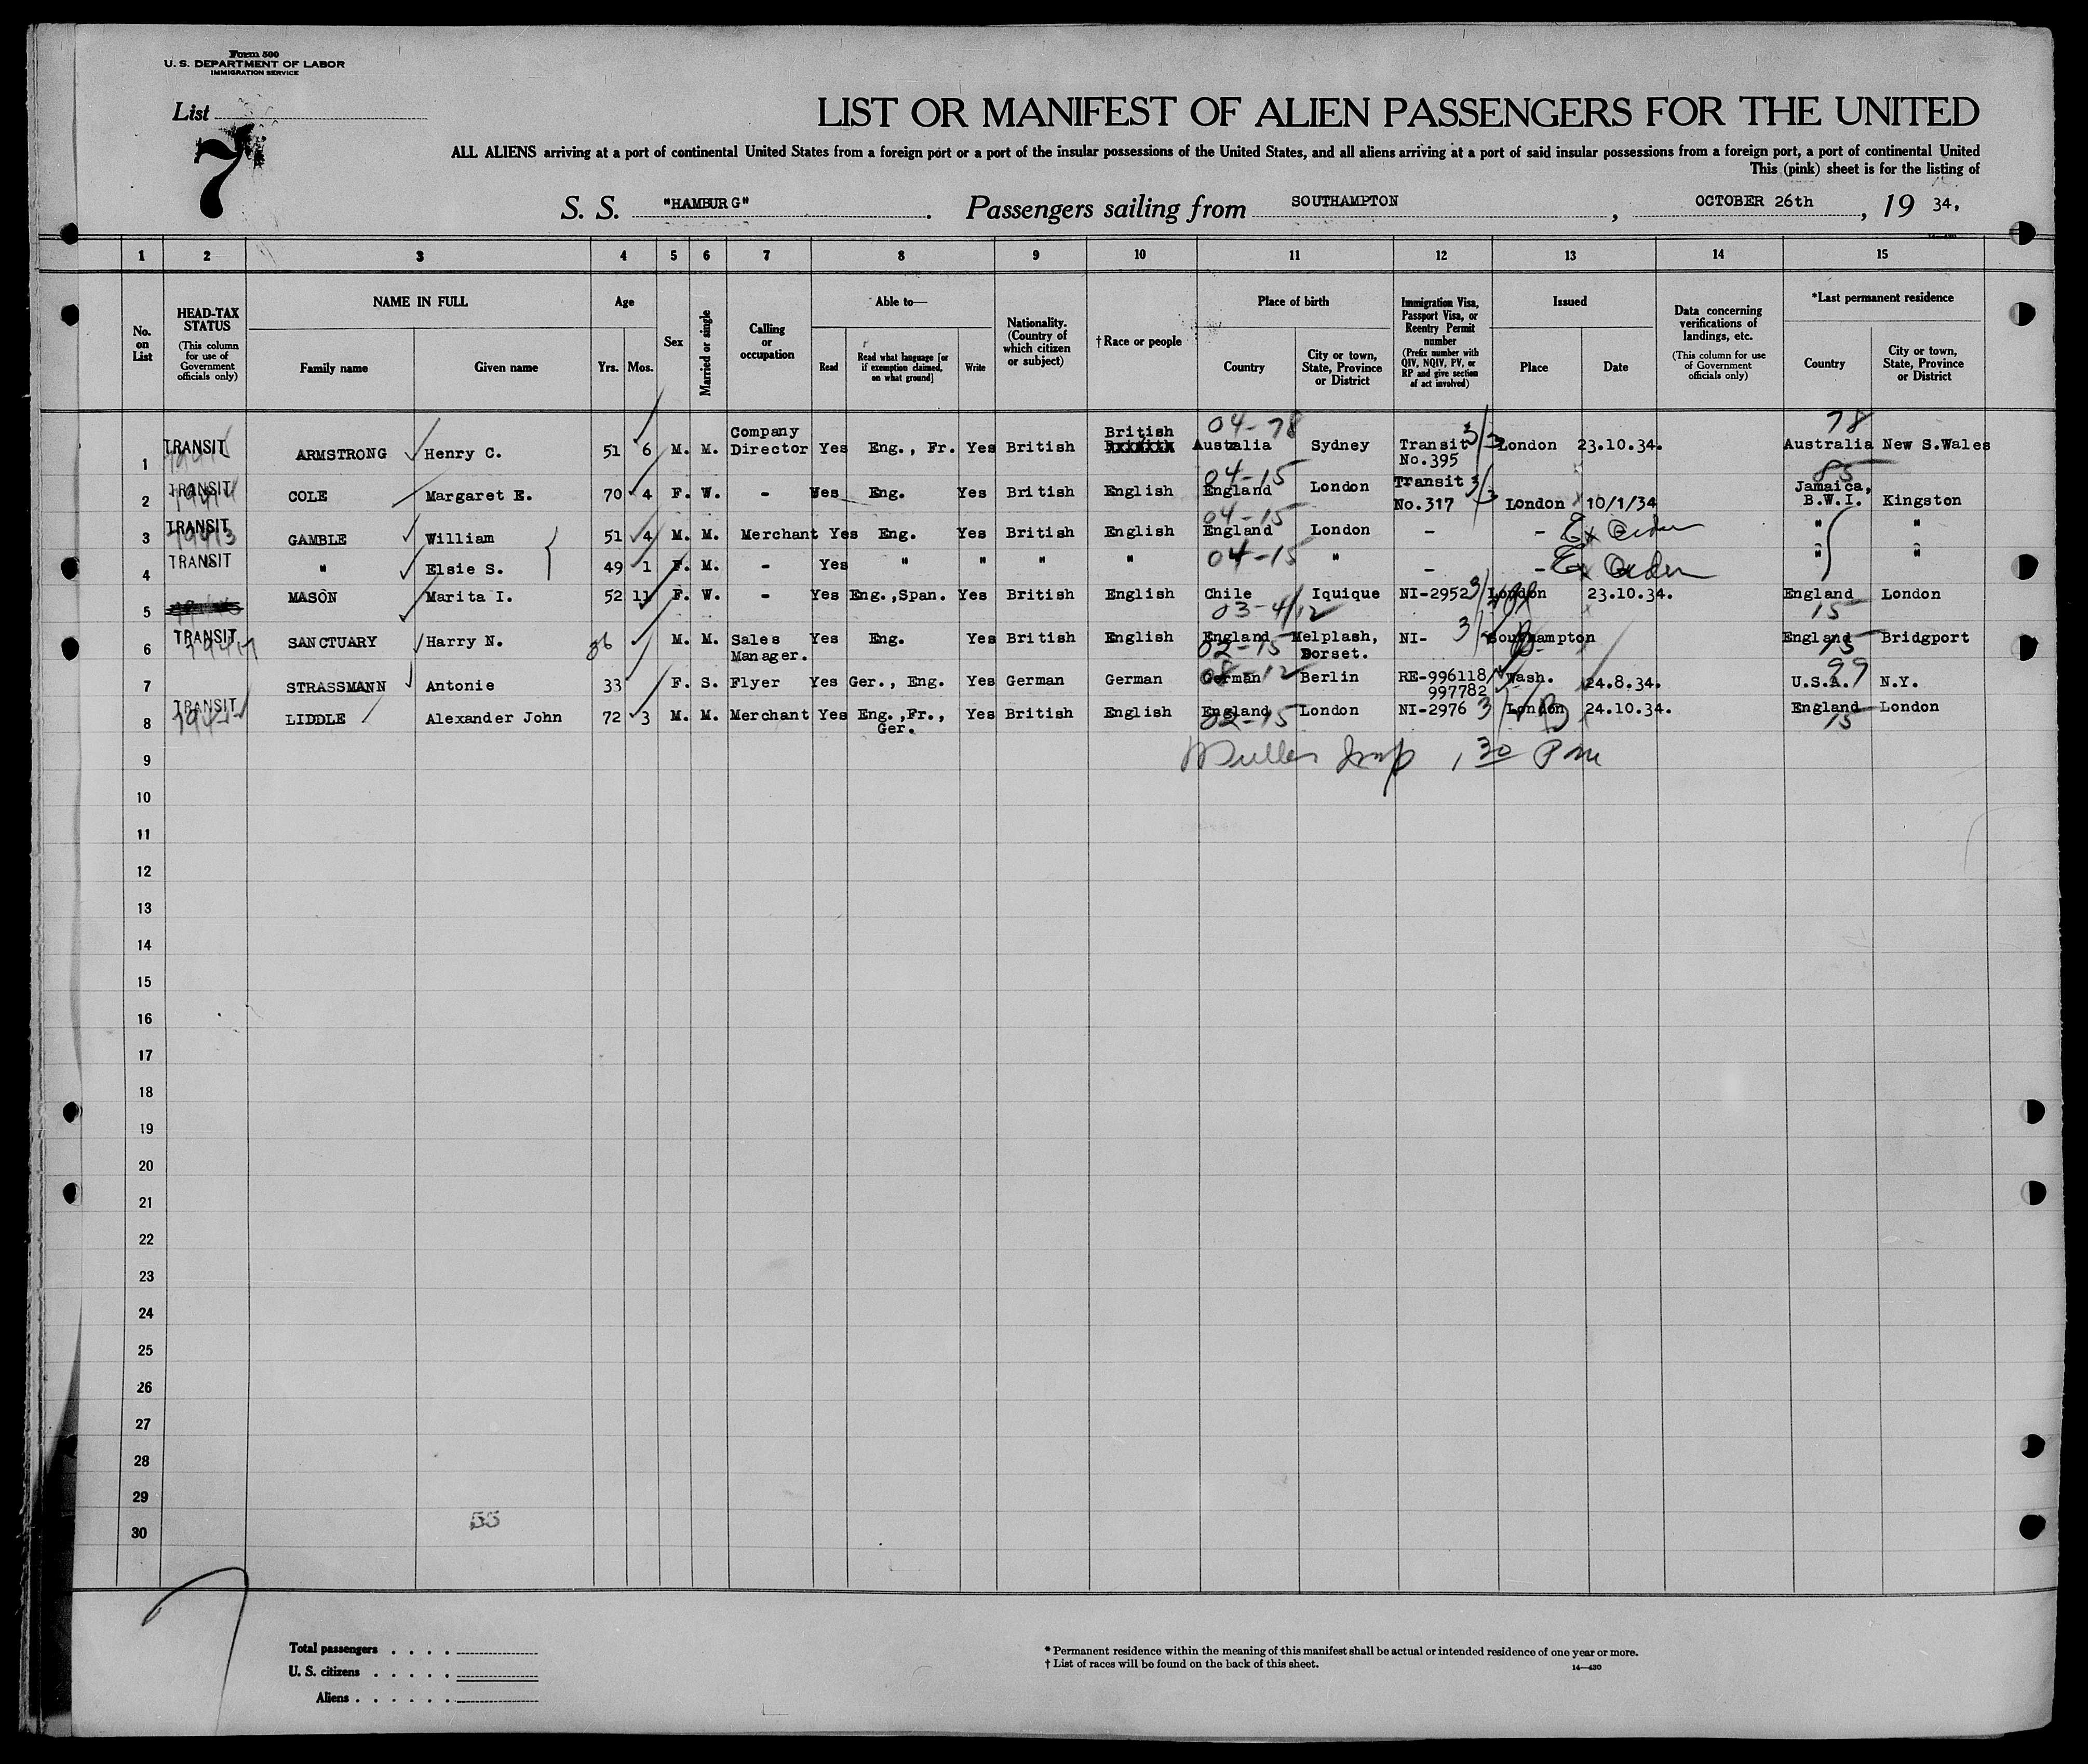 Form 500
U. S. DEPARTMENT OF LABOR
IMMIGRATION SERVICE
List
7
LIST OR MANIFEST OF ALIEN PASSENGERS FOR THE UNITED
ALL ALIENS arriving at a port of continental United States from a foreign port or a port of the insular possessions of the United States, and all aliens arriving at a port of said insular possessions from a foreign port, a port of continental United
This (pink) sheet is for the listing of
S. S. "HAMBURG". Passengers sailing from SOUTHAMPTON, OCTOBER 26th, 19 34.
1 2 3 4 5 6 7 8 9 10 11 12 13 14 15
No. on List
HEAD-TAX STATUS (This column for use of Government officials only)
NAME IN FULL
Family name Given name
Age
Yrs. Mos.
Sex
Married or single
Calling or occupation
Able to—
Read Read what language [or if exemption claimed, on what ground] Write
Nationality. (Country of which citizen or subject)
†Race or people
Place of birth
Country City or town, State, Province or District
Immigration Visa, Passport Visa, or Reentry Permit number (Prefix number with QIV, NQIV, PV, or RP and give section of act involved)
Issued
Place Date
Data concerning verifications of landings, etc. (This column for use of Government officials only)
*Last permanent residence
Country City or town, State, Province or District
04-78 78
1 TRANSIT ARMSTRONG Henry C. 51 6 M. M. Company Director Yes Eng., Fr. Yes British British Australia Sydney Transit No.395 3/3 London 23.10.34. Australia New S.Wales
04-15 85
2 TRANSIT COLE Margaret E. 70 4 F. W. - Yes Eng. Yes British English England London Transit No.317 3/3 London 10/1/34 Jamaica, B.W.I. Kingston
04-15
3 TRANSIT GAMBLE William 51 4 M. M. Merchant Yes Eng. Yes British English England London - - Ex Order " "
4 TRANSIT " Elsie S. 49 1 F. M. - Yes " " " " 04-15 " - - Ex Order " "
5 MASON Marita I. 52 11 F. W. - Yes Eng.,Span. Yes British English Chile Iquique NI-2952 3/ London 23.10.34. England London
03-4/12 15
6 TRANSIT SANCTUARY Harry N. 36 M. M. Sales Manager. Yes Eng. Yes British English England Melplash, Dorset. NI- 3/ Southampton England Bridgport
02-15 15
08-12 99
7 STRASSMANN Antonie 33 F. S. Flyer Yes Ger., Eng. Yes German German German Berlin RE-996118/997782 Wash. 24.8.34. U.S.A. N.Y.
8 TRANSIT LIDDLE Alexander John 72 3 M. M. Merchant Yes Eng.,Fr., Ger. Yes British English England London NI-2976 3/ London 24.10.34. England London
02-15 15
9 Insp 1 30 Pm
10
11
12
13
14
15
16
17
18
19
20
21
22
23
24
25
26
27
28
29
30
55
Total passengers . . . .
U. S. citizens . . . . .
Aliens . . . . . .
* Permanent residence within the meaning of this manifest shall be actual or intended residence of one year or more.
† List of races will be found on the back of this sheet.
14—430